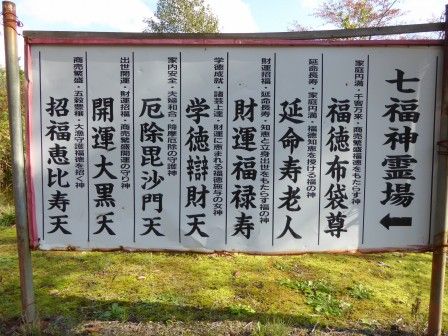 七福神霊場
家庭円満・千客万来・商売繁盛福徳をもたらす福の神
福徳布袋尊
延命長寿・家庭円満・福徳知恵を授ける福の神
延命寿老人
財運招福・延命長寿・知恵と立身出世をもたらす福の神
財運福禄寿
学徳成就・諸芸上達・財運に恵まれる福徳施与の女神
学徳辯財天
家内安全・夫婦和合・降摩厄除の守護神
厄除毘沙門天
出世開運・財運招福・商売繁盛開運の守り神
開運大黒天
商売繁盛・五穀豊穣・大漁守護福徳を招く神
招福恵比寿天